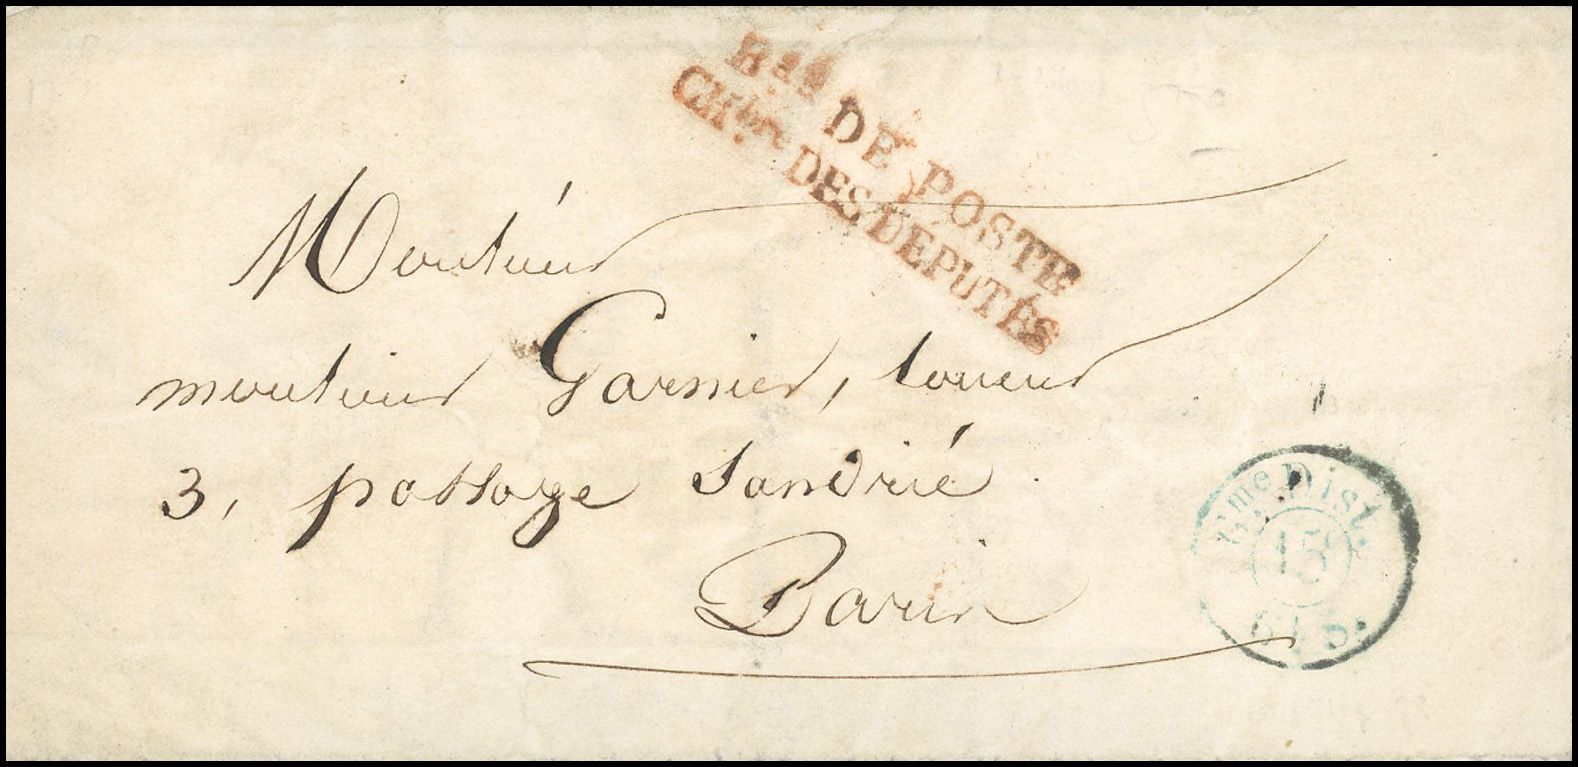 Bau DE POSTE
Chbre DES DÉPUTÉS
Monsieur
monsieur Garnier, loueur
3, passage Sandrié
Paris
6me Dist.
15c